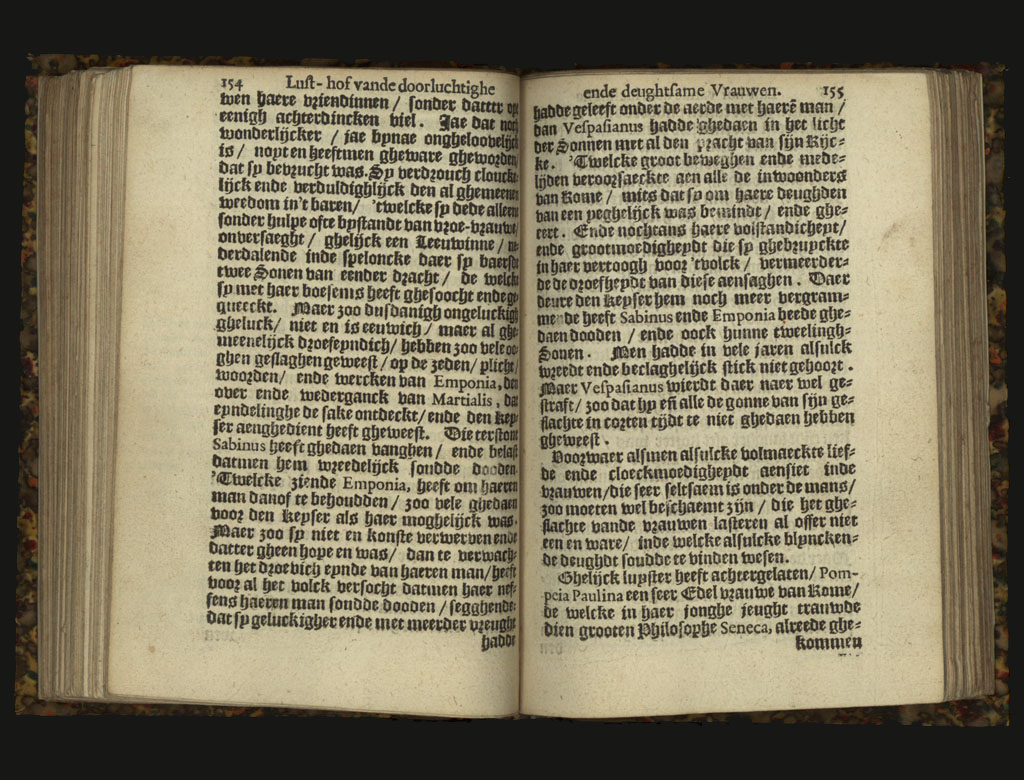 154 Lust-hof vande doorluchtighe
wen haere vriendinnen / sonder datter op
eenigh achterdincken viel. Jae dat noch
wonderlijcker / jae bynae ongheloovelijck
is / noyt en heeftmen gheware gheworden
dat sy bevrucht was. Sy verdrouch cloucke-
lijck ende verduldighlijck den al ghemeenen
weedom in't baren / 'twelcke sy dede alleen
sonder hulpe ofte bystandt van vroe-vrauwe
onversaeght / ghelijck een Leeuwinne / ne-
derdalende inde speloncke daer sy baerde
twee Sonen van eender dracht / de welcke
sy met haer boesems heeft ghesoocht ende ge-
queeckt. Maer zoo dusdanigh ongeluckigh
gheluck / niet en is eeuwich / maer al ghe-
meenelijck droefeyndich / hebben zoo vele oo-
ghen geslaghen geweest / op de zeden / plicht /
woorden / ende wercken van Emponia, den
over ende wederganck van Martialis, dat
eyndelinghe de sake ontdeckt / ende den Key-
ser aenghedient heeft gheweest. Die terstont
Sabinus heeft ghedaen vanghen / ende belast
datmen hem wreedelijck soudde dooden.
'Twelcke ziende Emponia, heeft om haeren
man danof te behoudden / zoo vele ghedaen
voor den Keyser als haer moghelijck was.
Maer zoo sy niet en konste verwerven ende
datter gheen hope en was / dan te verwach-
ten het droevich eynde van haeren man / heeft
voor al het volck versocht datmen haer nef-
fens haeren man soudde dooden / segghende:
dat sy geluckigher ende met meerder vreught
hadde
ende deughtsame Vrauwen. 155
hadde geleeft onder de aerde met haerē man /
dan Vespasianus hadde ghedaen in het licht
der Sonnen met al den pracht van sijn Rijc-
ke. 'Twelcke groot beweghen ende mede-
lijden veroorsaeckte aen alle de inwoonders
van Rome / mits dat sy om haere deughden
van een yeghelijck was bemindt / ende ghe-
eert. Ende nochtans haere volstandicheyt /
ende grootmoedigheydt die sy ghebruyckte
in haer vertoogh voor 'tvolck / vermeerder-
de de droefheydt van diese aensaghen. Daer
deure den Keyser hem noch meer vergram-
mende heeft Sabinus ende Emponia beede ghe-
daen dooden / ende oock hunne tweelingh-
Sonen. Men hadde in vele jaren alsulck
wreedt ende beclaghelijck stick niet gehoort.
Maer Vespasianus wierdt daer naer wel ge-
straft / zoo dat hy eñ alle de gonne van sijn ge-
slachte in corten tijdt te niet ghedaen hebben
gheweest.
Voorwaer alsmen alsulcke volmaeckte lief-
de ende cloeckmoedigheydt aensiet inde
vrauwen / die seer seltsaem is onder de mans /
zoo moeten wel beschaemt zijn / die het ghe-
slachte vande vrauwen lasteren al offer niet
een en ware / inde welcke alsulcke blyncken-
de deughdt soudde te vinden wesen.
Ghelijck luyster heeft achtergelaten / Pom-
peia Paulina een seer Edel vrauwe van Rome /
de welcke in haer jonghe jeught trauwde
dien grooten Philosophe Seneca, alreede ghe-
kommen